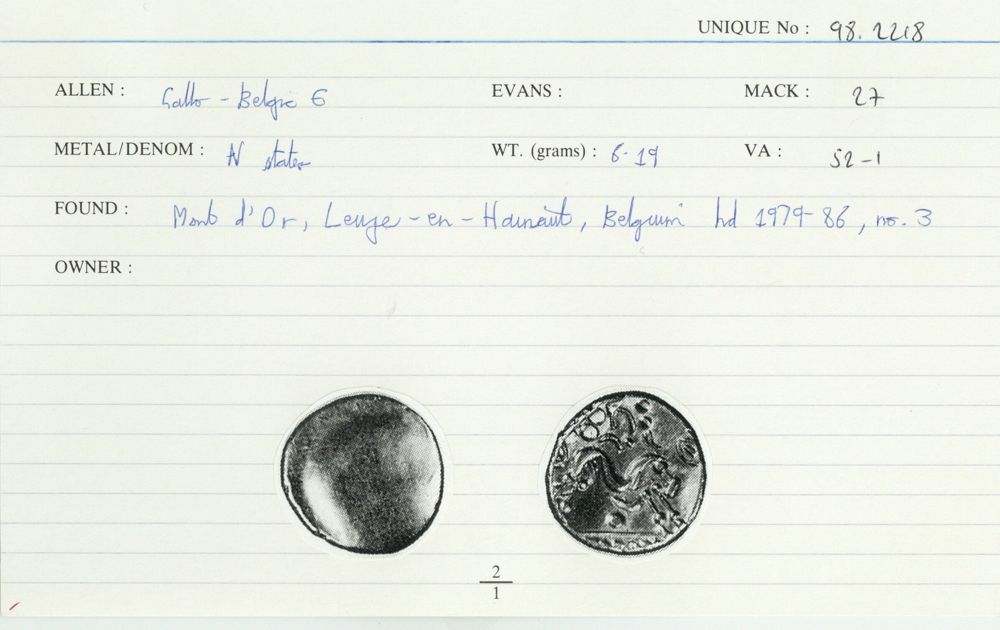 UNIQUE No : 98.2218
ALLEN : Gallo-Belgic E EVANS : MACK : 27
METAL/DENOM : N stater WT. (grams) : 6.19 VA : 52-1
FOUND : Mont d'Or, Leuze-en-Hainaut, Belgium hd 1979-86, no. 3
OWNER :
2
1